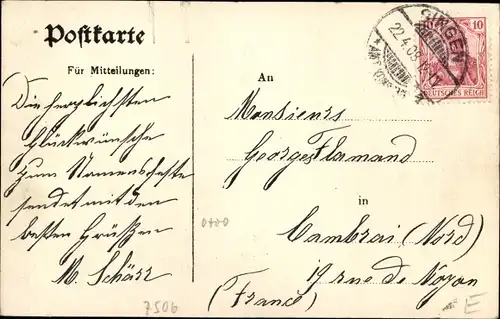 Postkarte
Für Mitteilungen:
Die herzlichsten
Glückwünsche
zum Namensfeste
sendet mit den
besten Grüßen
M. Schärr
7506
SINGEN
22.4.08
10
DEUTSCHES REICH
An
Monsieurs
Georges Flamand
0400
in
Cambrai (Nord)
19 rue de Noyon
(France)
E